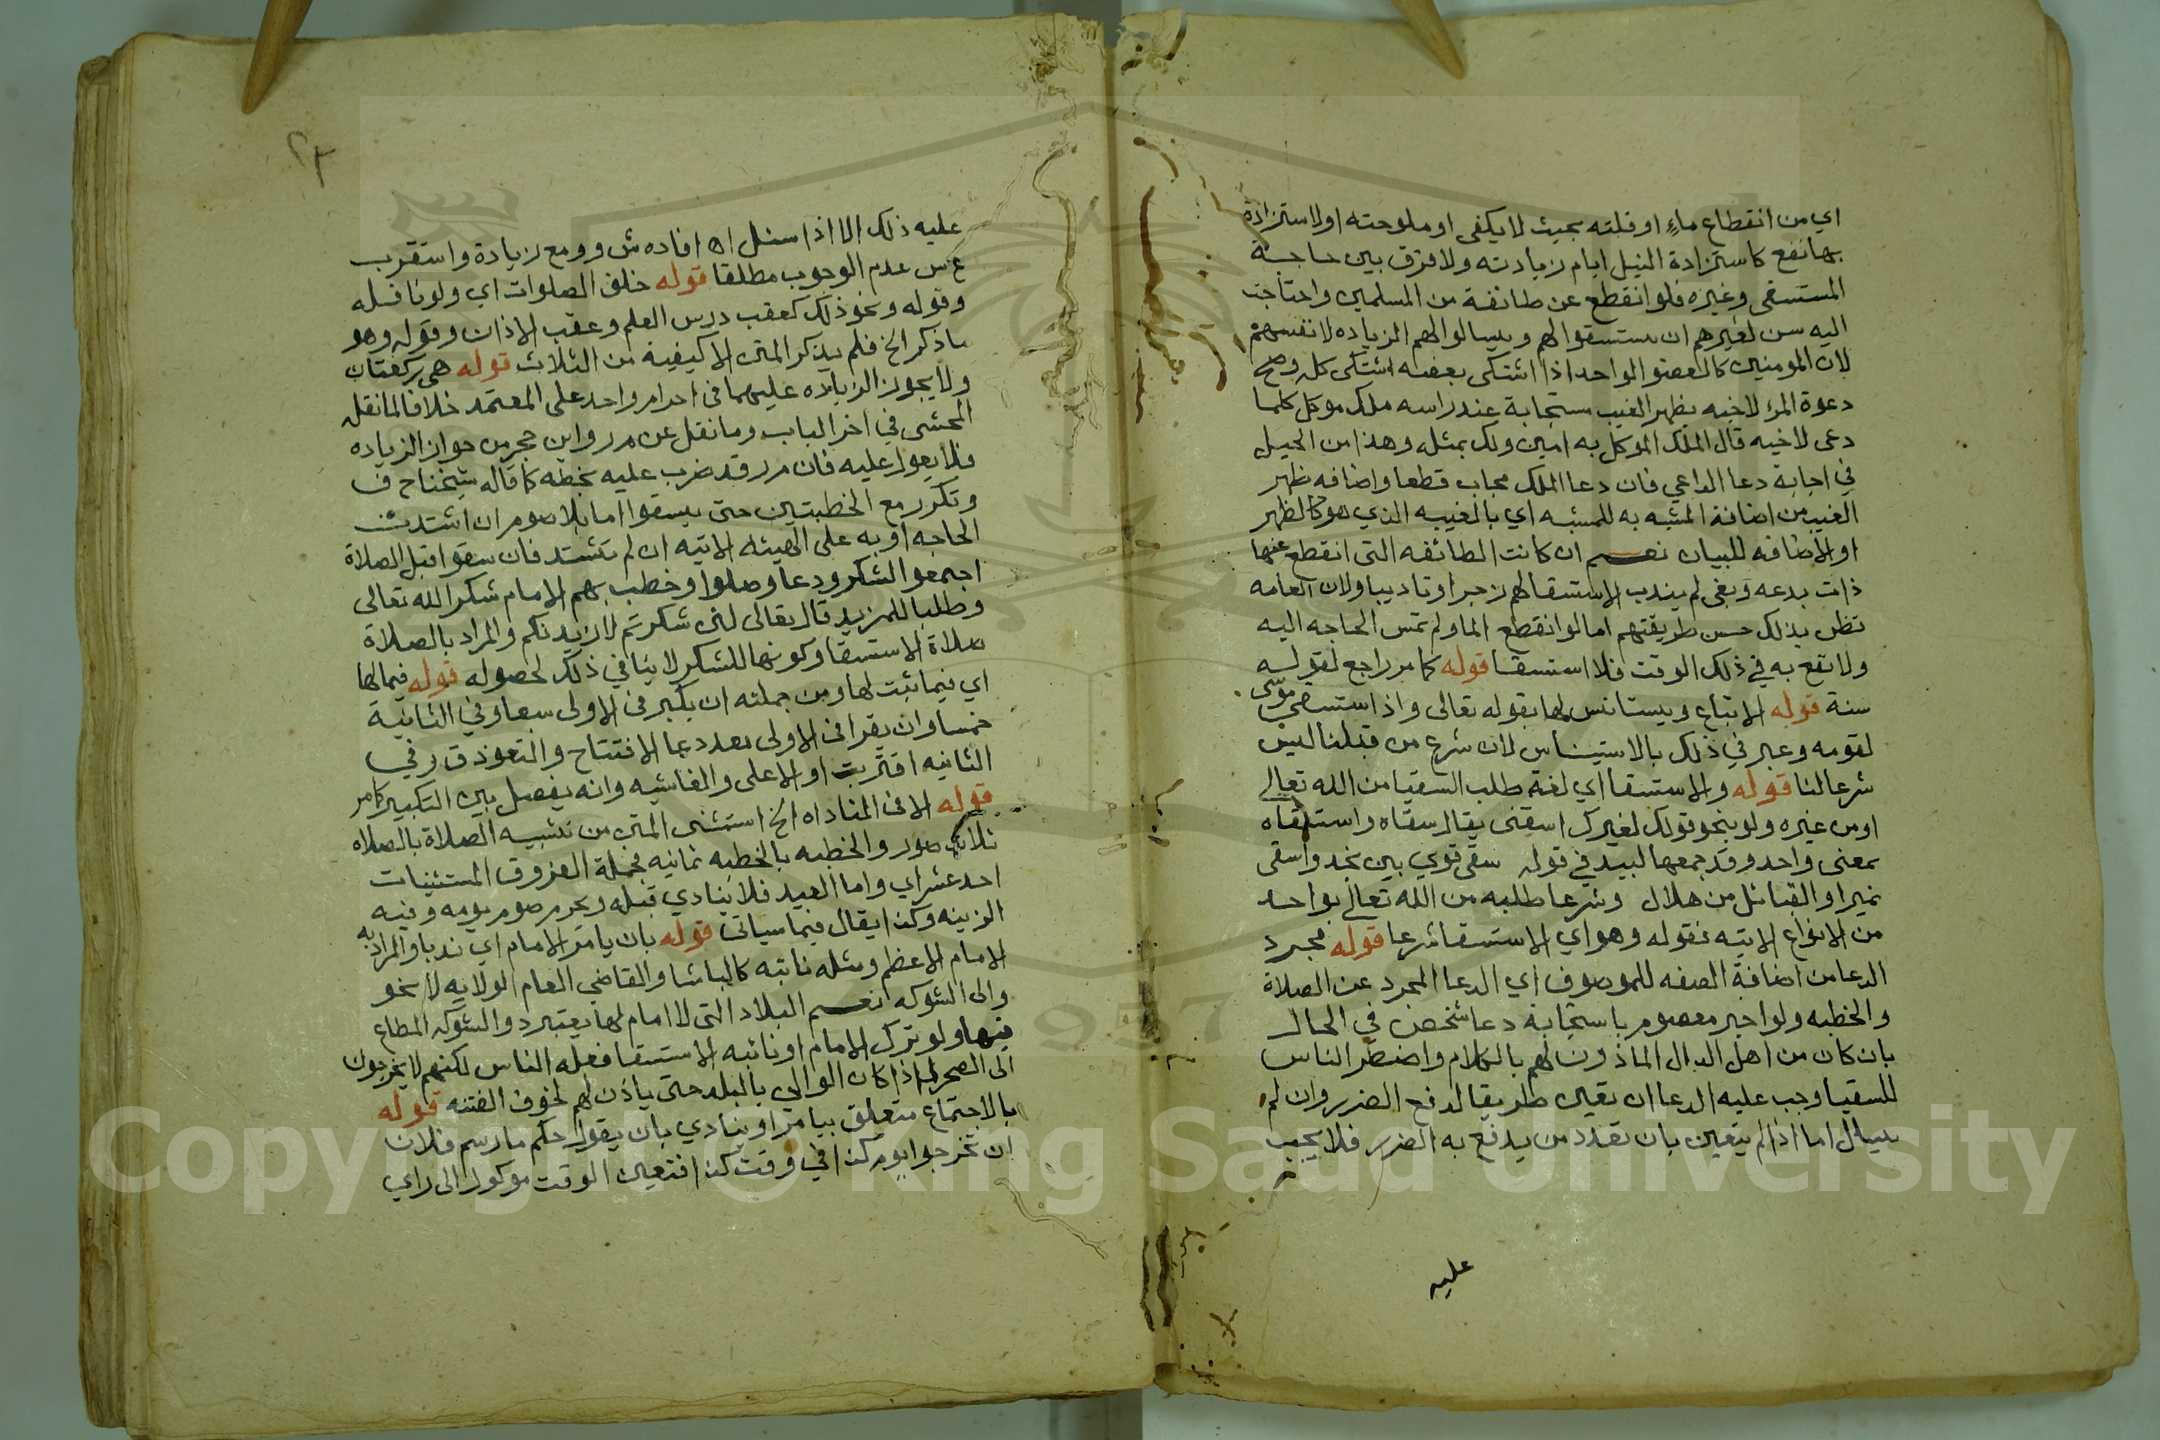 اي من انقطاع ماء او قلته بحيث لا يكفى او ملوحته او لاستزادة
بها نفع كاستزادة النيل ايام زيادته ولا فرق بين حاجة
المستسقى وغيره فلو انقطع عن طائفة من المسلمين واحتاجت
اليه سن لغيرهم ان يستسقوا لهم ويسالوا لهم الزياده لانفسهم
لان المومنين كالعضو الواحد اذا اشتكى بعضه اشتكى كله وصح
دعوة المرء لاخيه بظهر الغيب مستجابة عند راسه ملك موكل كلما
دعى لاخيه قال الملك الموكل به امين ولك بمثله وهذا من الحيل
في اجابة دعا الداعي فان دعا الملك مجاب قطعا واضافه ظهر
الغيب من اضافة المشبه به للمشبه اي بالغيبه الذي هو كالظهر
او الاضافه للبيان نعم ان كانت الطائفه التى انقطع عنها
ذات بدعه وبغى لم يندب الاستسقا لهم زجرا وتاديبا ولان العامه
تظن بذلك حسن طريقتهم اما لو انقطع الما ولم تمس الحاجه اليه
ولا نفع به في ذلك الوقت فلا استسقا قوله كما مر راجع لقوله
سنة قوله الاتباع ويستانس لها بقوله تعالى واذ استسقى موسى
لقومه وعبر في ذلك بالاستيناس لان شرع من قبلنا ليس
شرعا لنا قوله والاستسقا اي لغة طلب السقيا من الله تعالى
او من غيره ولو بنحو قولك لغيرك اسقنى يقال سقاه واستسقاه
بمعنى واحد وقد جمعها لبيد في قوله سقى قوي بين نجد واسقى
نميرا والقبائل من هلال وشرعا طلبه من الله تعالى بواحد
من الانواع الاتيه فقوله وهو اي الاستسقا شرعا قوله مجرد
الدعا من اضافة الصفه للموصوف اي الدعا المجرد عن الصلاة
والخطبه ولو اخبر معصوم باستجابة دعا شخص في الحال
بان كان من اهل الدال الماذون لهم بالكلام واضطر الناس
للسقيا وجب عليه الدعا ان تعين طريقا لدفع الضرر وان لم
يسال اما اذا لم يتعين بان تعدد من يدفع به الضرر فلا يجب
عليه
٢٣
عليه ذلك الا اذا سئل اه افاده ش و ومع زيادة واستقرب
ع س عدم الوجوب مطلقا قوله خلف الصلوات اي ولو نافله
وقوله ونحو ذلك كعقب درس العلم وعقب الاذان وقوله وهو
ما ذكر الخ فلم يذكر المتن الا كيفية من الثلاث قوله هى ركعتان
ولا يجوز الزياده عليهما فى احرام واحد على المعتمد خلافا لما نقل
المحشى في اخر الباب وما نقل عن م ر وابن حجر من جواز الزياده
فلا يعول عليه فان م ر قد ضرب عليه بخطه كما قاله شيخنا ح ف
وتكرر مع الخطبتين حتى يسقوا اما بلا صوم ان اشتدت
الحاجه او به على الهيئه الاتيه ان لم تشتد فان سقوا قبل الصلاة
اجتمعوا لشكر ودعا وصلوا وخطب بهم الامام شكرا لله تعالى
وطلبا للمزيد قال تعالى لئن شكرتم لازيدنكم والمراد بالصلاة
صلاة الاستسقا وكونها للشكر لا ينافي ذلك لحصوله قوله فيما لها
اي فيما يثبت لها ومن جملته ان يكبر فى الاولى سبعا وفي الثانية
خمسا وان يقرا فى الاولى بعد دعا الافتتاح والتعوذ ق وفي
الثانيه اقتربت او الاعلى والغاشيه وانه يفصل بين التكبير كما مر
قوله الا فى المناداه الخ استثنى المتن من تشبيه الصلاة بالصلاه
ثلاث صور والخطبه بالخطبه ثمانيه فجملة الفروق المستثنيات
احد عشر اي واما العيد فلا ينادي قبله ويحرم صوم يومه وفيه
الزينه وكذا يقال فيما سياتى قوله بان يامر الامام اي ندبا والمراد به
الامام الاعظم ومثله نائبه كالباشا والقاضي العام الولايه لا نحو
والى الشوكه نعم البلاد التى لا امام لها يعتبر ذو الشوكه المطاع
فيها ولو ترك الامام او نائبه الاستسقا فعله الناس لكنهم لا يخرجون
الى الصحرا اذا كان الوالي بالبلد حتى ياذن لهم لخوف الفتنه قوله
بالاجتماع متعلق بيامر او ينادي بان يقول حكم ما رسم فلان
ان تخرجوا يوم كذا في وقت كذا فتعيين الوقت موكول الى راي
Copyright © King Saud University
1957